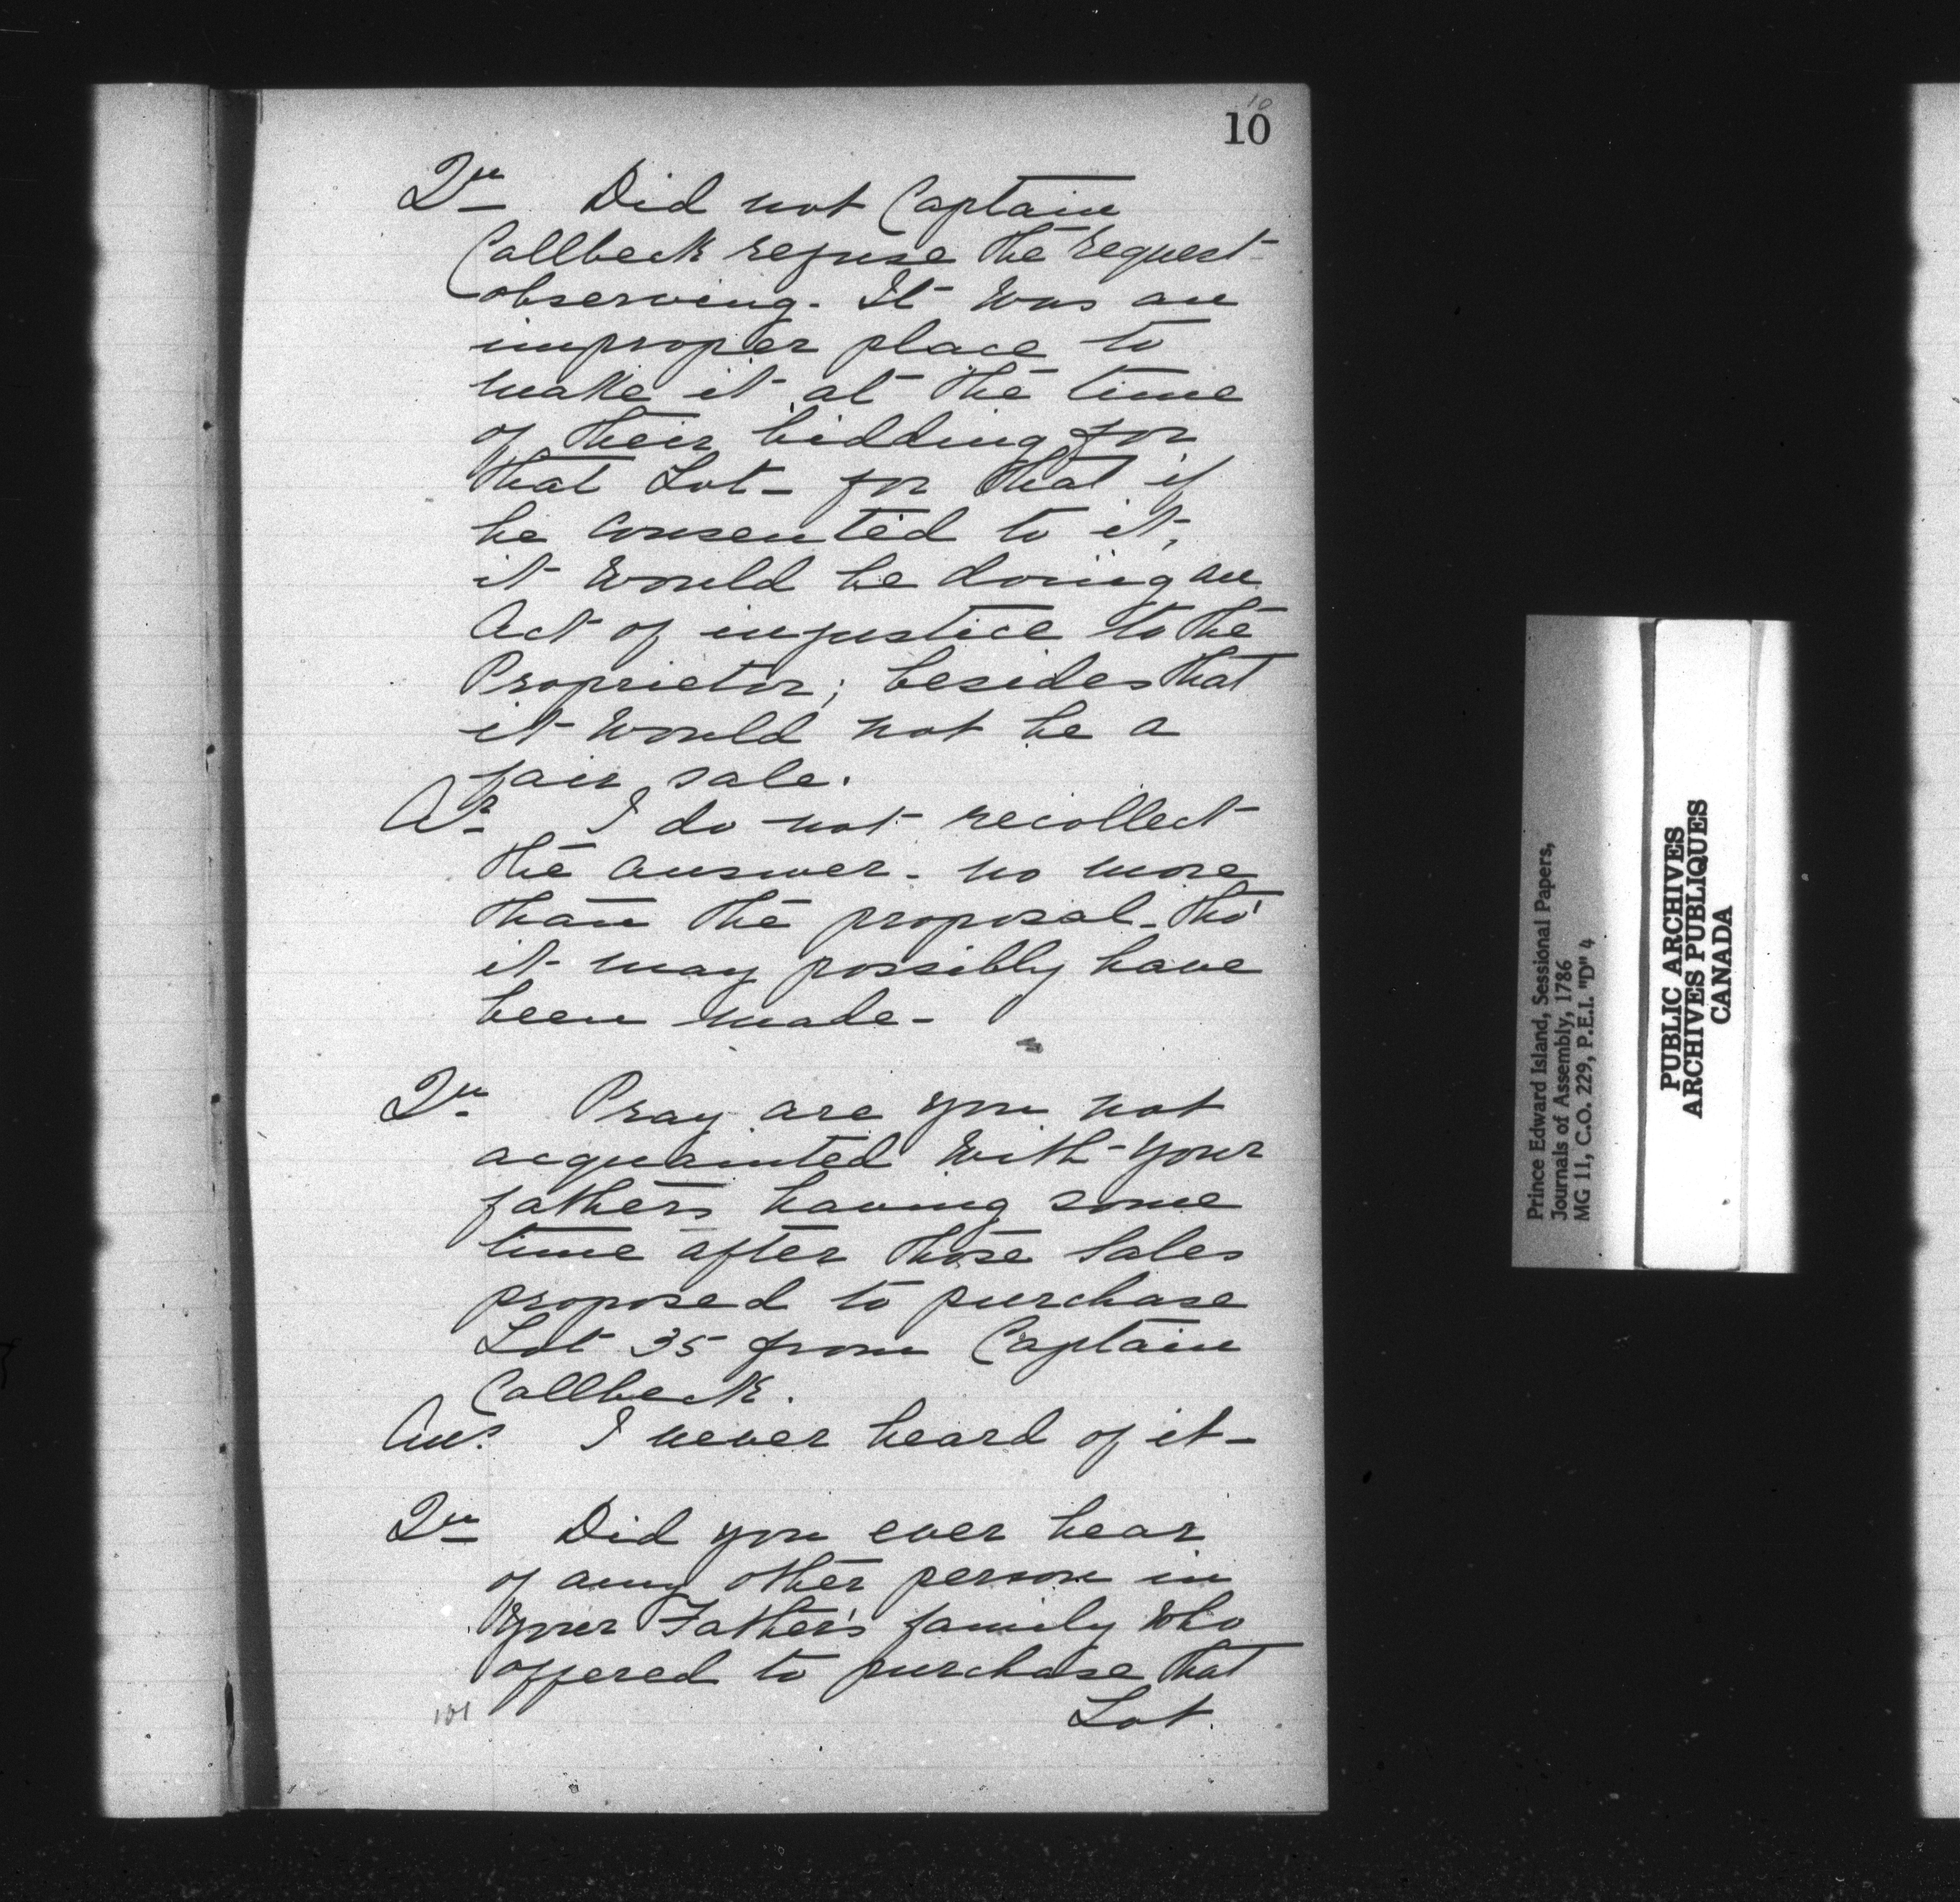 10
10
Qu Did not Captain
Callbeck refuse the request
observing. It was an
improper place to
make it at the time
of their bidding for
that Lot - for that if
he consented to it,
it would be doing an
Act of injustice to the
Proprietor; besides that
it would not be a
fair sale.
Ar I do not recollect
the answer - no more
than the proposal - tho'
it may possibly have
been made -
Qu Pray are you not
acquainted with your
fathers having some
time after those Sales
proposed to purchase
Lot 35 from Captain
Callbeck.
Ans. I never heard of it -
Qu Did you ever hear
of any other person in
your Father's family who
offered to purchase that
Lot.
101
Prince Edward Island, Sessional Papers,
Journals of Assembly, 1786
MG 11, C.O. 229, P.E.I. "D" 4
PUBLIC ARCHIVES
ARCHIVES PUBLIQUES
CANADA